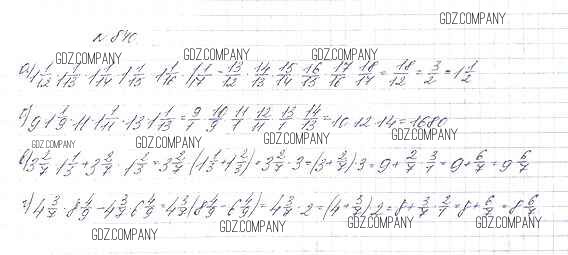 GDZ.COMPANY
N 840.
GDZ.COMPANY GDZ.COMPANY GDZ.COMPANY
а) 1 1/12 · 1 1/13 · 1 1/14 · 1 1/15 · 1 1/16 · 1 1/17 = 13/12 · 14/13 · 15/14 · 16/15 · 17/16 · 18/17 = 18/12 = 3/2 = 1 1/2
б) 9 · 1 1/9 · 11 · 1 1/11 · 13 · 1 1/13 = 9/1 · 10/9 · 11/1 · 12/11 · 13/1 · 14/13 = 10 · 12 · 14 = 1680
GDZ.COMPANY GDZ.COMPANY GDZ.COMPANY GDZ.COMPANY
в) 3 2/7 · 1 1/3 + 3 2/7 · 1 2/3 = 3 2/7 · (1 1/3 + 1 2/3) = 3 2/7 · 3 = (3 + 2/7) · 3 = 9 + 2/7 · 3/1 = 9 + 6/7 = 9 6/7
г) 4 3/7 · 8 4/9 - 4 3/7 · 6 4/9 = 4 3/7 · (8 4/9 - 6 4/9) = 4 3/7 · 2 = (4 + 3/7) · 2 = 8 + 3/7 · 2/1 = 8 + 6/7 = 8 6/7
GDZ.COMPANY GDZ.COMPANY GDZ.COMPANY GDZ.COMPANY